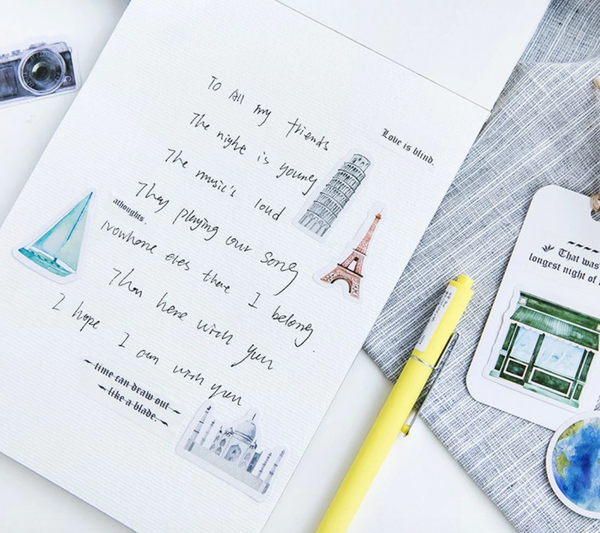 To All my friends
Love is blind.
The night is young
The music's loud
They playing our song
athoughts.
Nowhone eres there I belong.
Than here with yuu
I hope I am with yuu
time can draw out
like a blade.
That was
longest night of